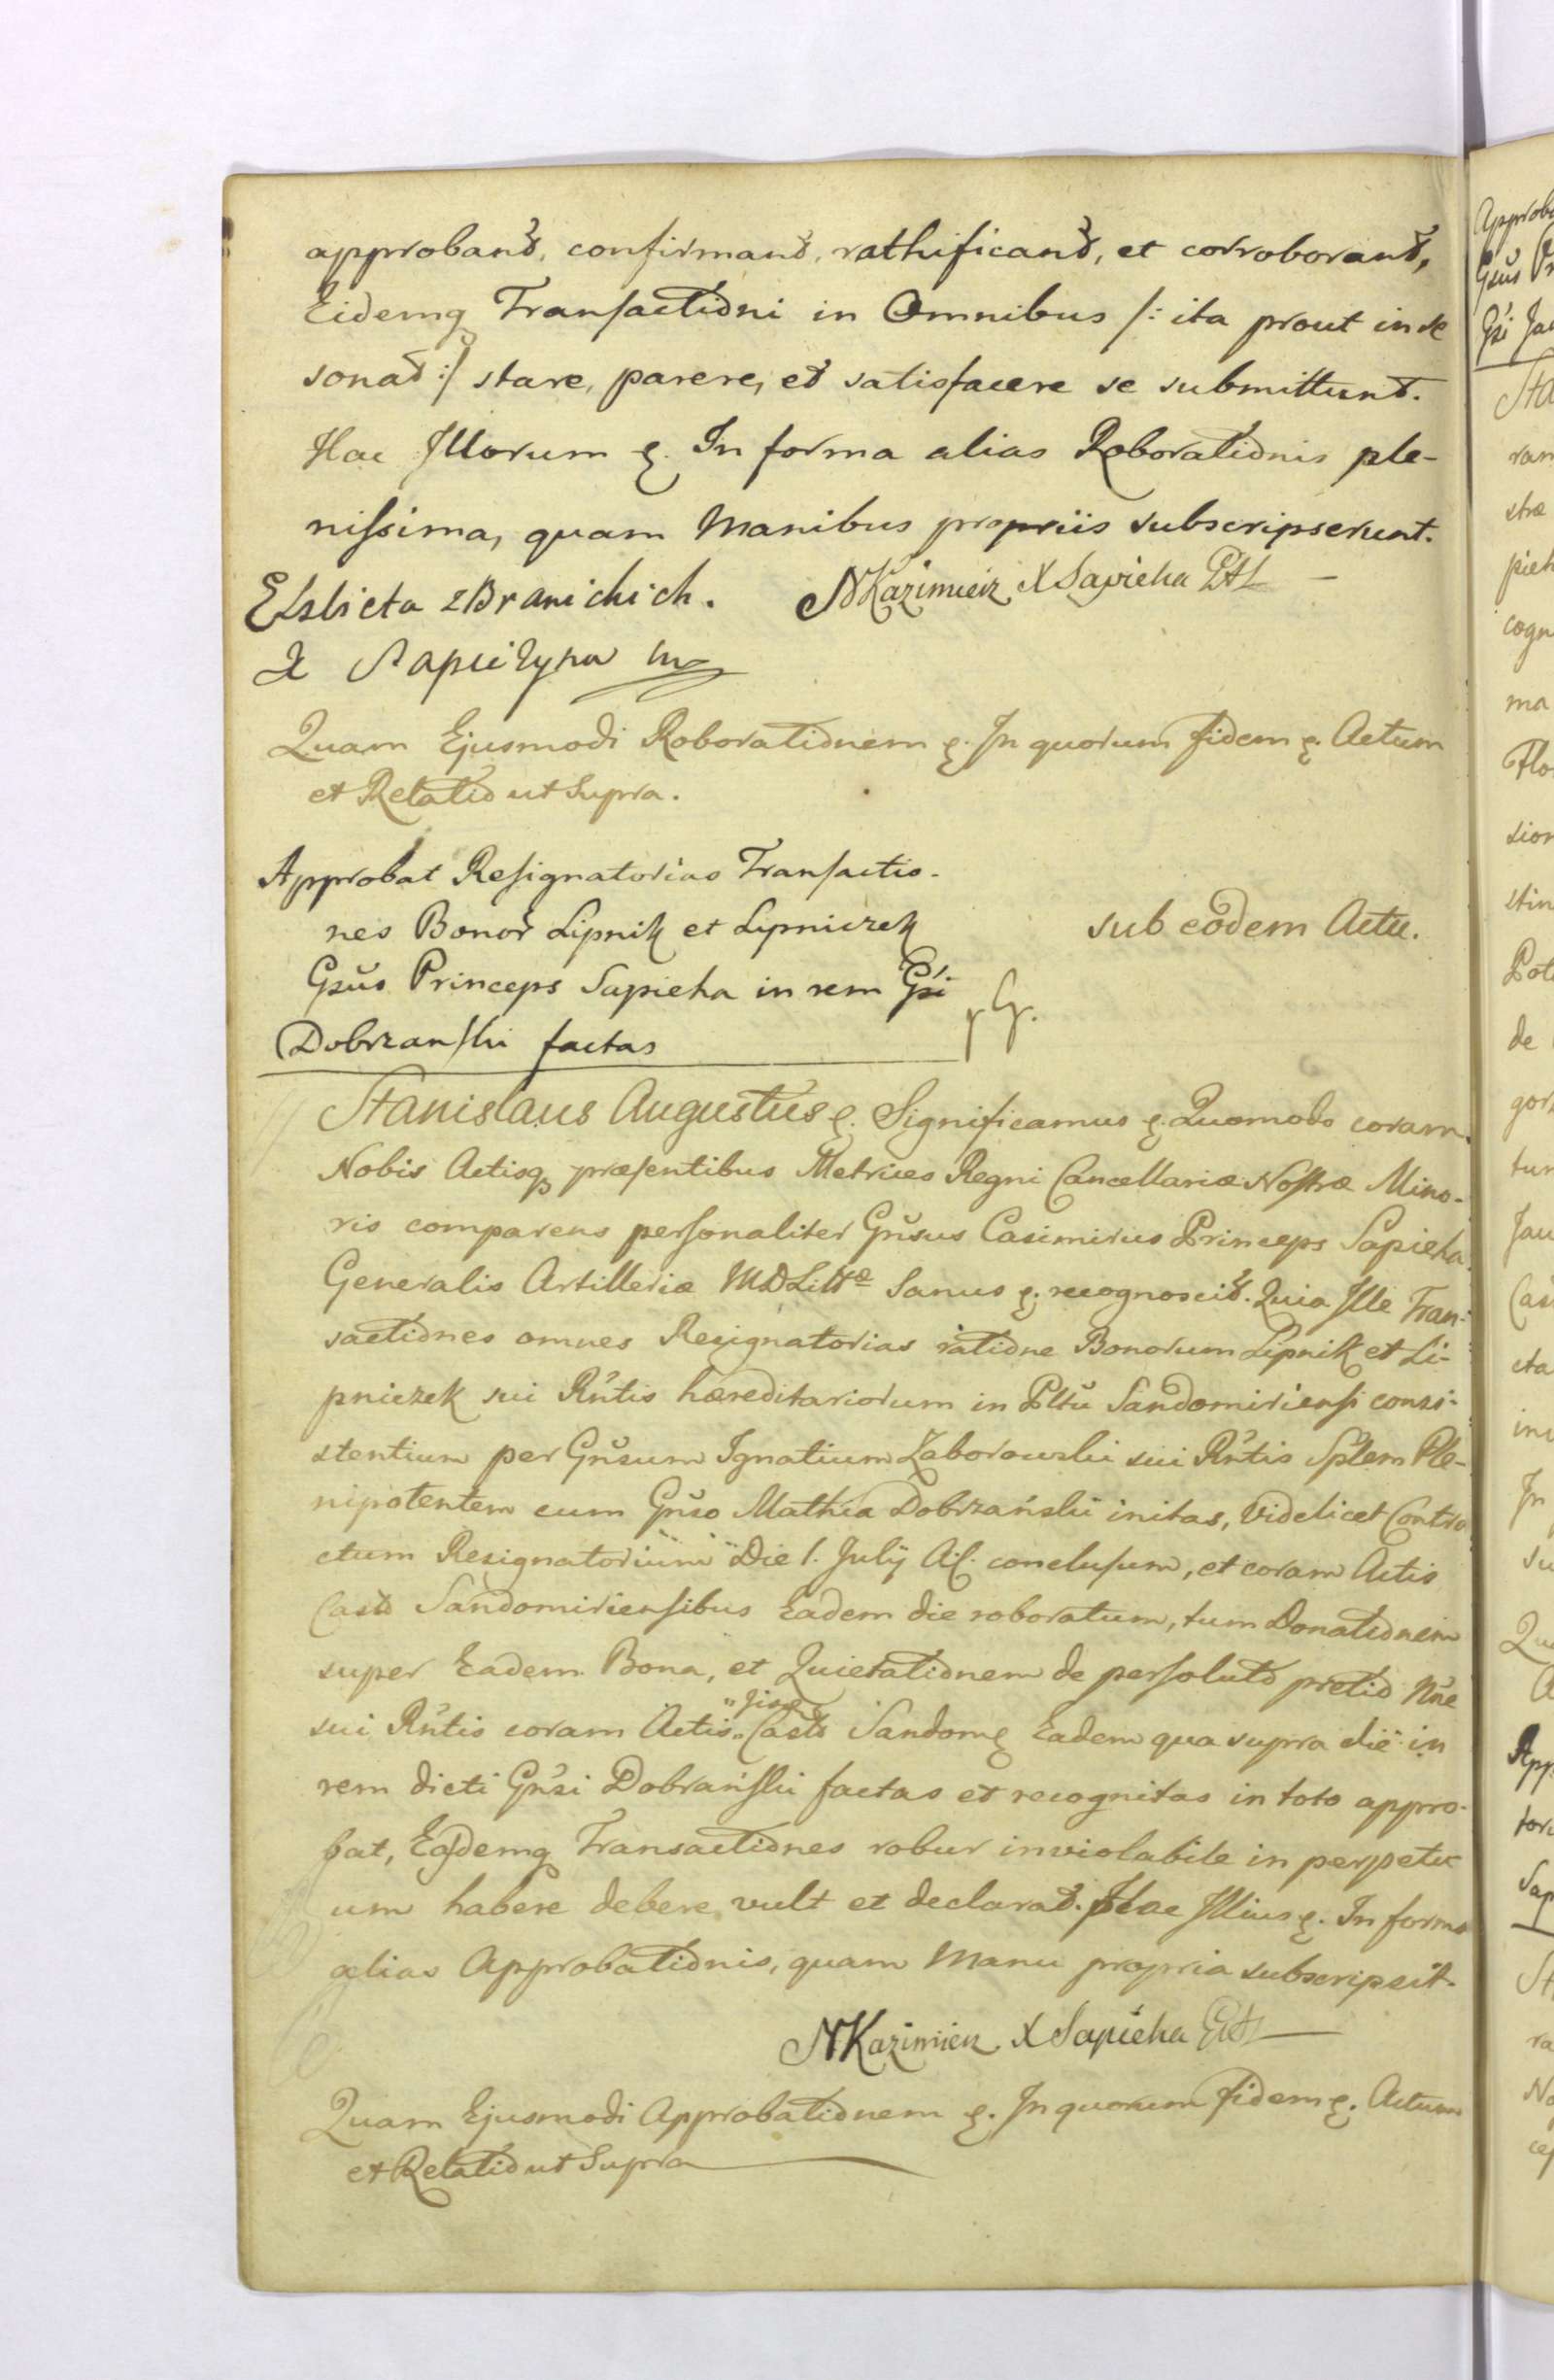 approband, confirmand, rathificand, et corroborand,
Eidemq Transactioni in Omnibus /: ita prout in se
sonat :/ stare, parere, et satisfacere se submittunt.
Hac Illorum &. In forma alias Roborationis ple-
nissima, quam Manibus propriis subscripserunt.
Elzbieta z Branickich. NKazimierz X Sapieha GAL
X Sapieżyna mp
Quam Ejusmodi Roborationem &. In quorum fidem &. Actum
et Relatio ut Supra.
Approbat Resignatorias Transactio-
nes Bonor Lipnik et Lipniczek
Gsŭs Princeps Sapieha in rem Gsi
Dobrzanski factas
sub eodem Actu.
Stanislaus Augustus &. Significamus &. Quomodo coram
Nobis Actisq praesentibus Metrices Regni Cancellariæ Nostræ Mino-
ris comparens personaliter Gn̆sus Casimirus Princeps Sapieha
Generalis Artilleriæ MDLittæ Sanus &. recognoscit. Quia Ille Tran-
sactiones omnes Resignatorias ratione Bonorum Lipnik et Li-
pniczek sui Rn̆tis hæreditariorum in Pltŭ Sandomiriensi consi-
stentium per Gn̆sum Ignatium Zaborowski sui Rn̆tis Splem Ple-
nipotentem cum Gn̆so Mathia Dobrzański initas, Videlicet Contra
ctum Resignatorium Die 1. Julij A.C. conclusum, et coram Actis
Casts Sandomiriensibus Eadem die roboratum, tum Donationem
super Eadem Bona, et Quietationem de persoluto pretio Nn̆e
sui Rn̆tis coram Actis Casts Sandom& Eadem qua supra die in
rem dicti Gn̆si Dobrański factas et recognitas in toto appro-
bat, Easdemq Transactiones robur inviolabile in perpetu
um habere debere vult et declarat. Hac Illius &. In forma
alias Approbationis, quam Manu propria subscripsit.
NKazimierz X Sapieha GAL
Quam Ejusmodi Approbationem &. In quorum fidem &. Actum
et Relatio ut Supra